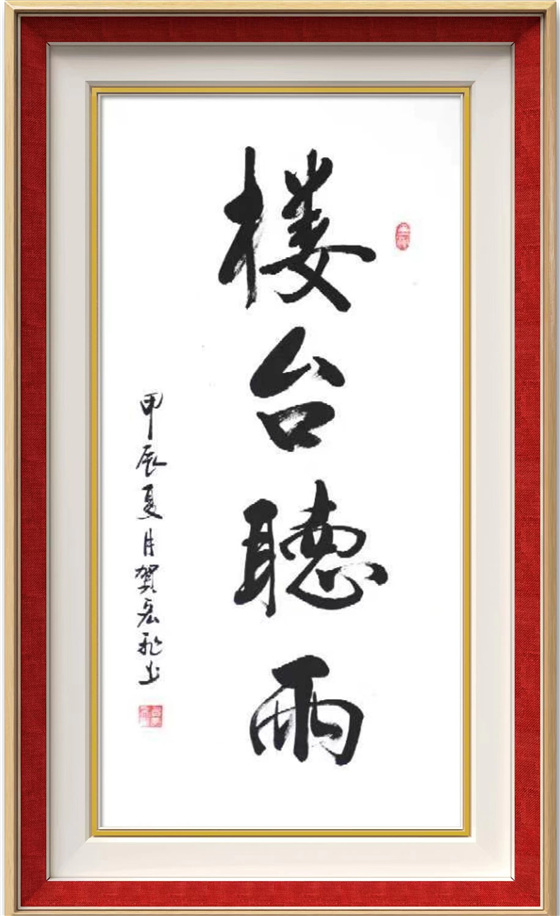 楼台聽雨
甲辰夏月賀宏